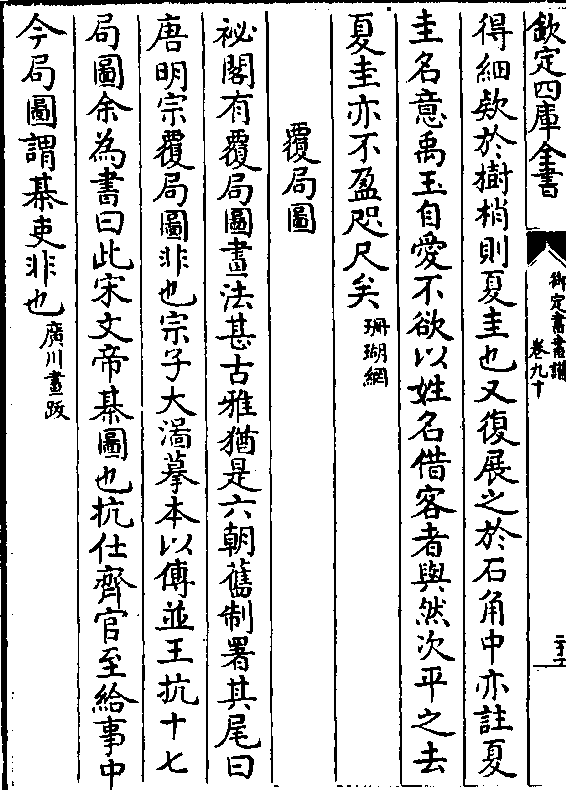 欽定四庫全書
御定書畫譜
卷九十
得細欵於樹梢則夏圭也又復展之於石角中亦註夏
圭名意禹玉自愛不欲以姓名借客者與然次平之去
夏圭亦不盈咫尺矣珊瑚網
覆局圖
祕閣有覆局圖畫法甚古雅猶是六朝舊制署其尾曰
唐明宗覆局圖非也宗子大濿摹本以傳並王抗十七
局圖余為書曰此宋文帝棊圖也抗仕齊官至給事中
今局圖謂棊吏非也廣川畫䟦